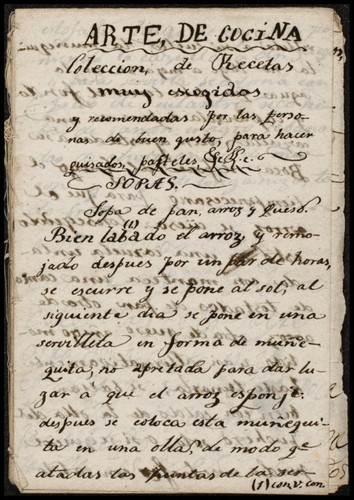 ARTE, DE COCINA
Coleccion, de Recetas
muy escogidas
y recomendadas por las perso-
nas de buen gusto, para hacer
guisados, pasteles &c. &c.
SOPAS.
Sopa de pan, arroz y queso.
Bien labado (1) el arroz, y remo-
jado despues por un par de horas,
se escurre y se pone al sol, al
siguiente dia se pone en una
servilleta en forma de muñe-
quita, no apretada para dar lu-
gar á que el arroz esponje.
despues se coloca esta muñequi-
ta en una olla, de modo q.e
atadas las puntas de la ser-
(1) con v. con.